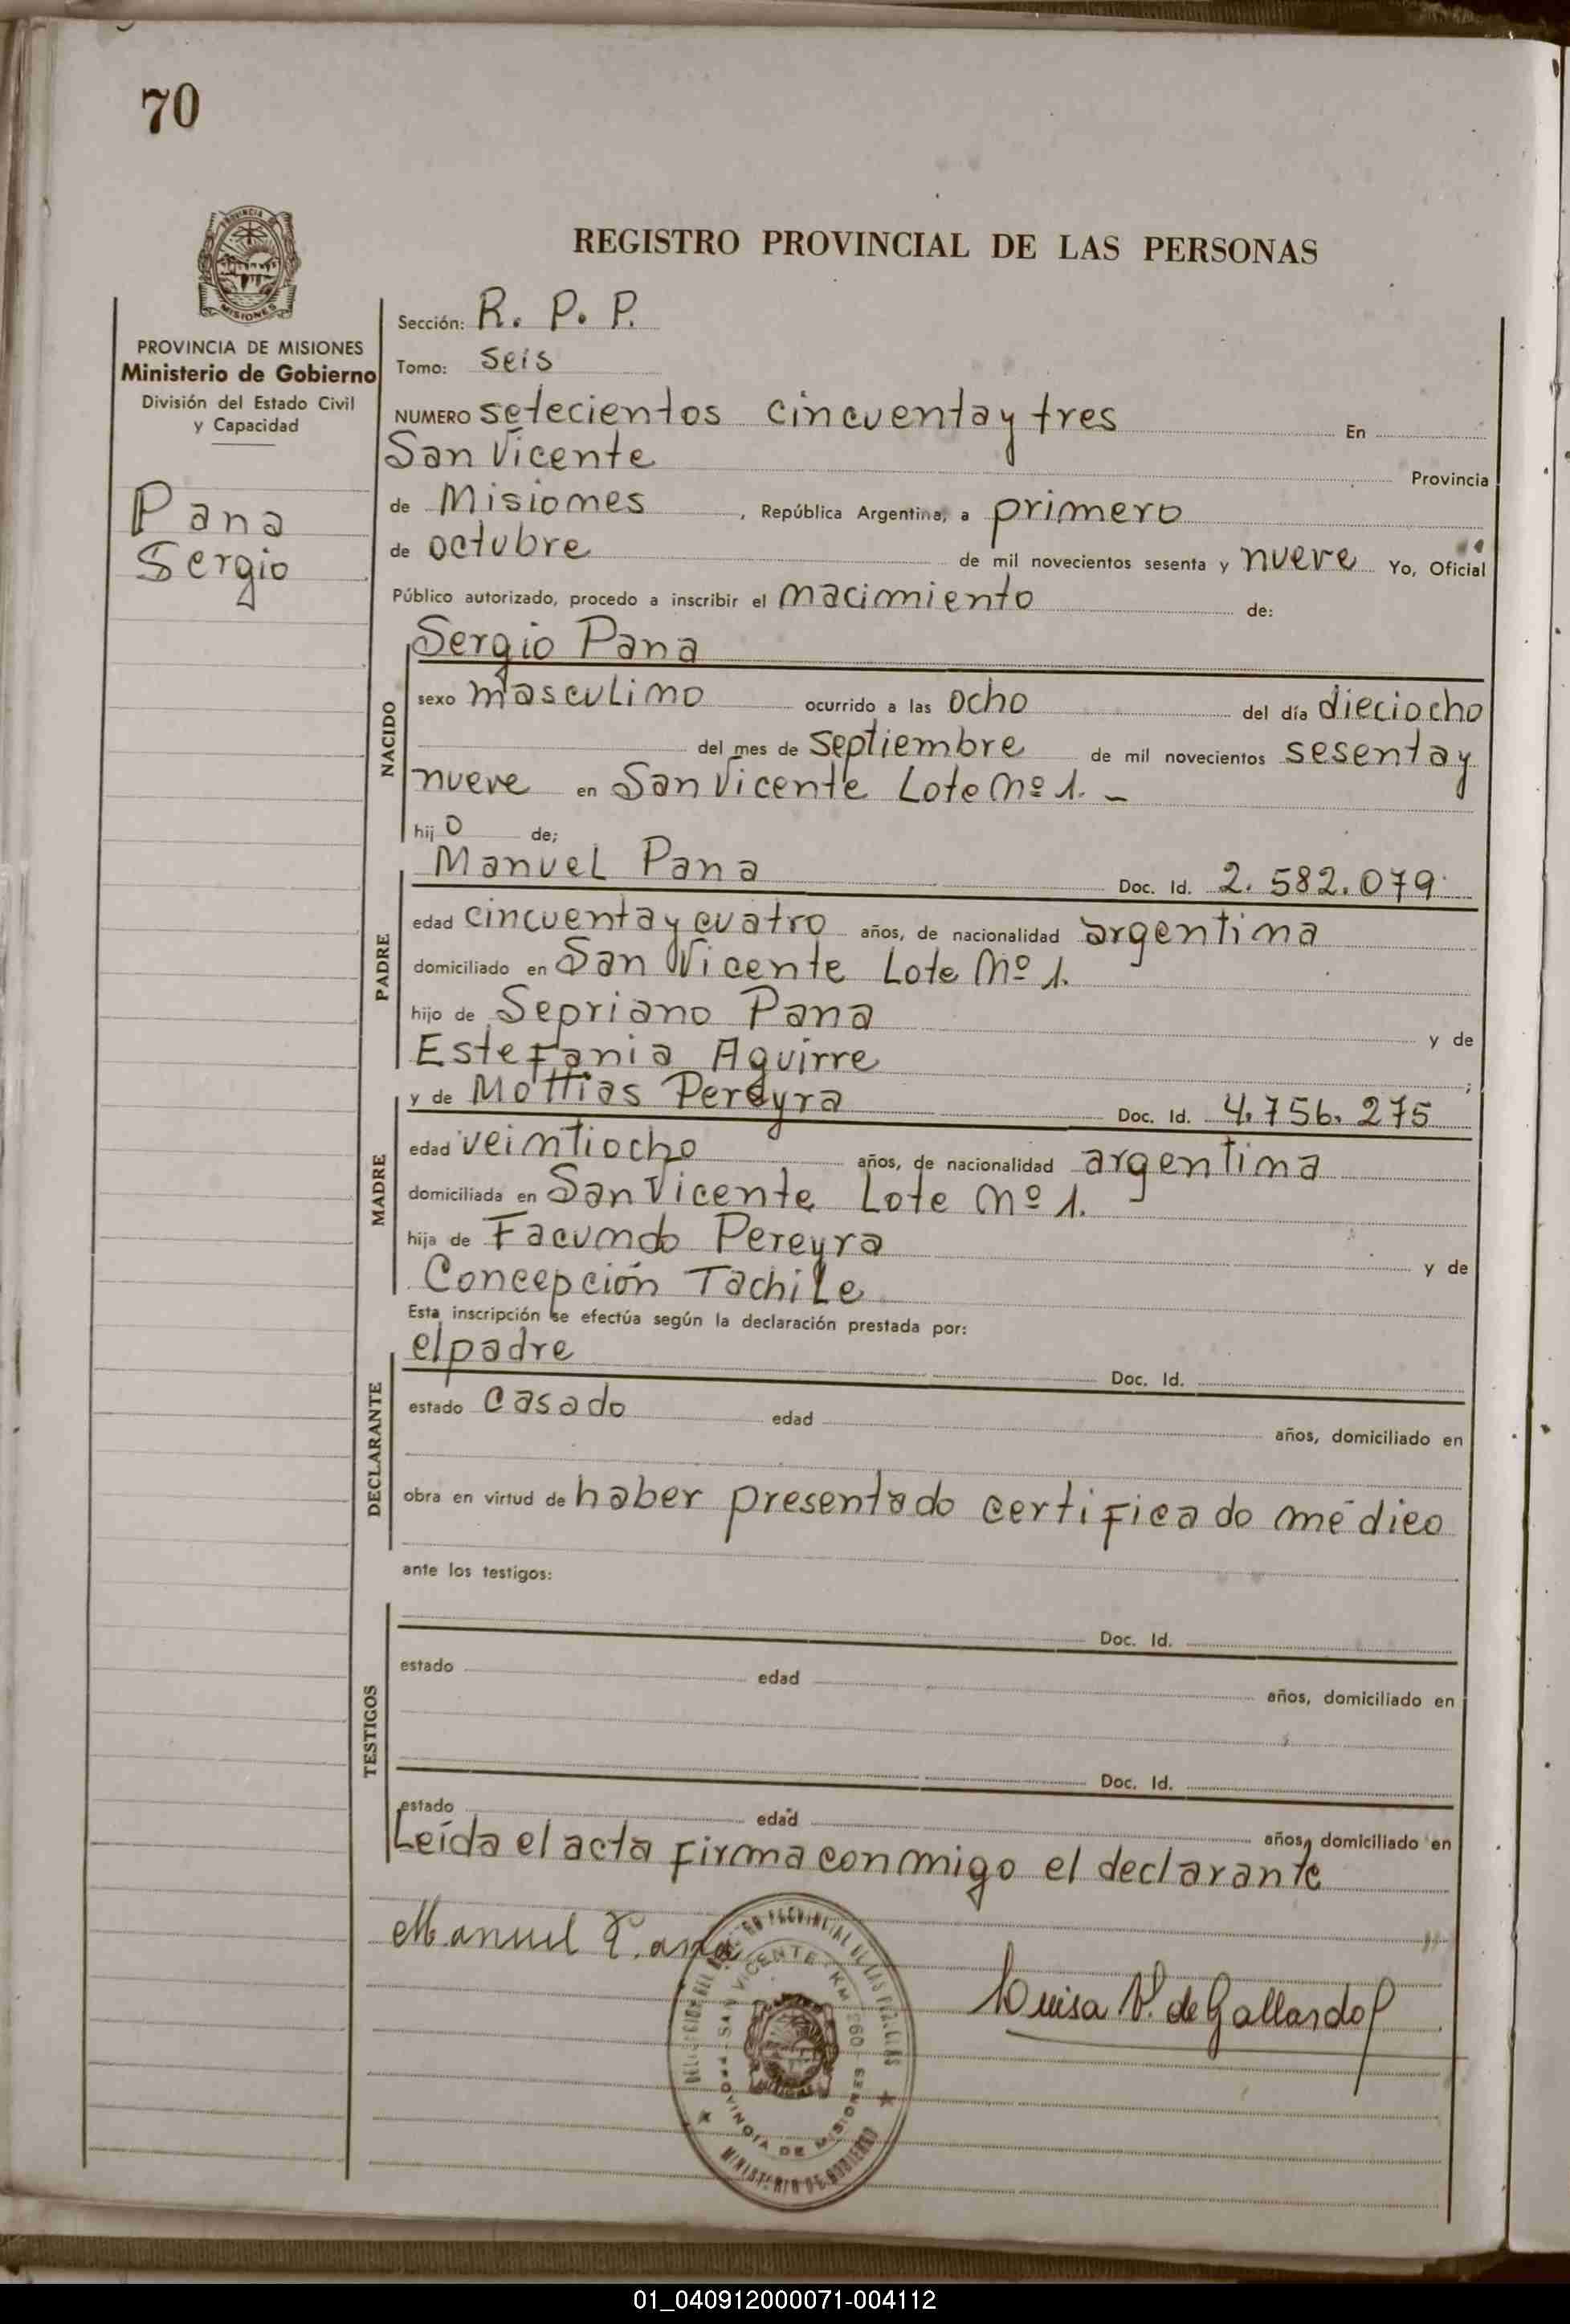 70
PROVINCIA DE
MISIONES
REGISTRO PROVINCIAL DE LAS PERSONAS
PROVINCIA DE MISIONES
Ministerio de Gobierno
División del Estado Civil
y Capacidad
Pana
Sergio
Sección: R. P. P.
Tomo: seis
NUMERO setecientos cincuenta y tres En
San Vicente Provincia
de Misiones, República Argentina, a primero
de octubre de mil novecientos sesenta y nueve Yo, Oficial
Público autorizado, procedo a inscribir el nacimiento de:
NACIDO
Sergio Pana
sexo masculino ocurrido a las ocho del día dieciocho
del mes de septiembre de mil novecientos sesenta y
nueve en San Vicente Lote Nº 1. -
hijo de;
PADRE
Manuel Pana Doc. Id. 2.582.079
edad cincuenta y cuatro años, de nacionalidad argentina
domiciliado en San Vicente Lote Nº 1.
hijo de Sepriano Pana y de
Estefania Aguirre ;
MADRE
y de Mottias Pereyra Doc. Id. 4.756.275
edad veintiocho años, de nacionalidad argentina
domiciliada en San Vicente Lote Nº 1.
hija de Facundo Pereyra y de
Concepción Tachile
Esta inscripción se efectúa según la declaración prestada por:
DECLARANTE
el padre Doc. Id.
estado casado edad años, domiciliado en
obra en virtud de haber presentado certificado médico
ante los testigos:
TESTIGOS
Doc. Id.
estado edad años, domiciliado en
Doc. Id.
estado edad años, domiciliado en
Leída el acta firma conmigo el declarante
Manuel Pana
Luisa V. de Gallardo
PROVINCIAL DE LAS PERSONAS
SAN VICENTE - KM 260
PROVINCIA DE MISIONES
MINISTERIO DE GOBIERNO
01_040912000071-004112